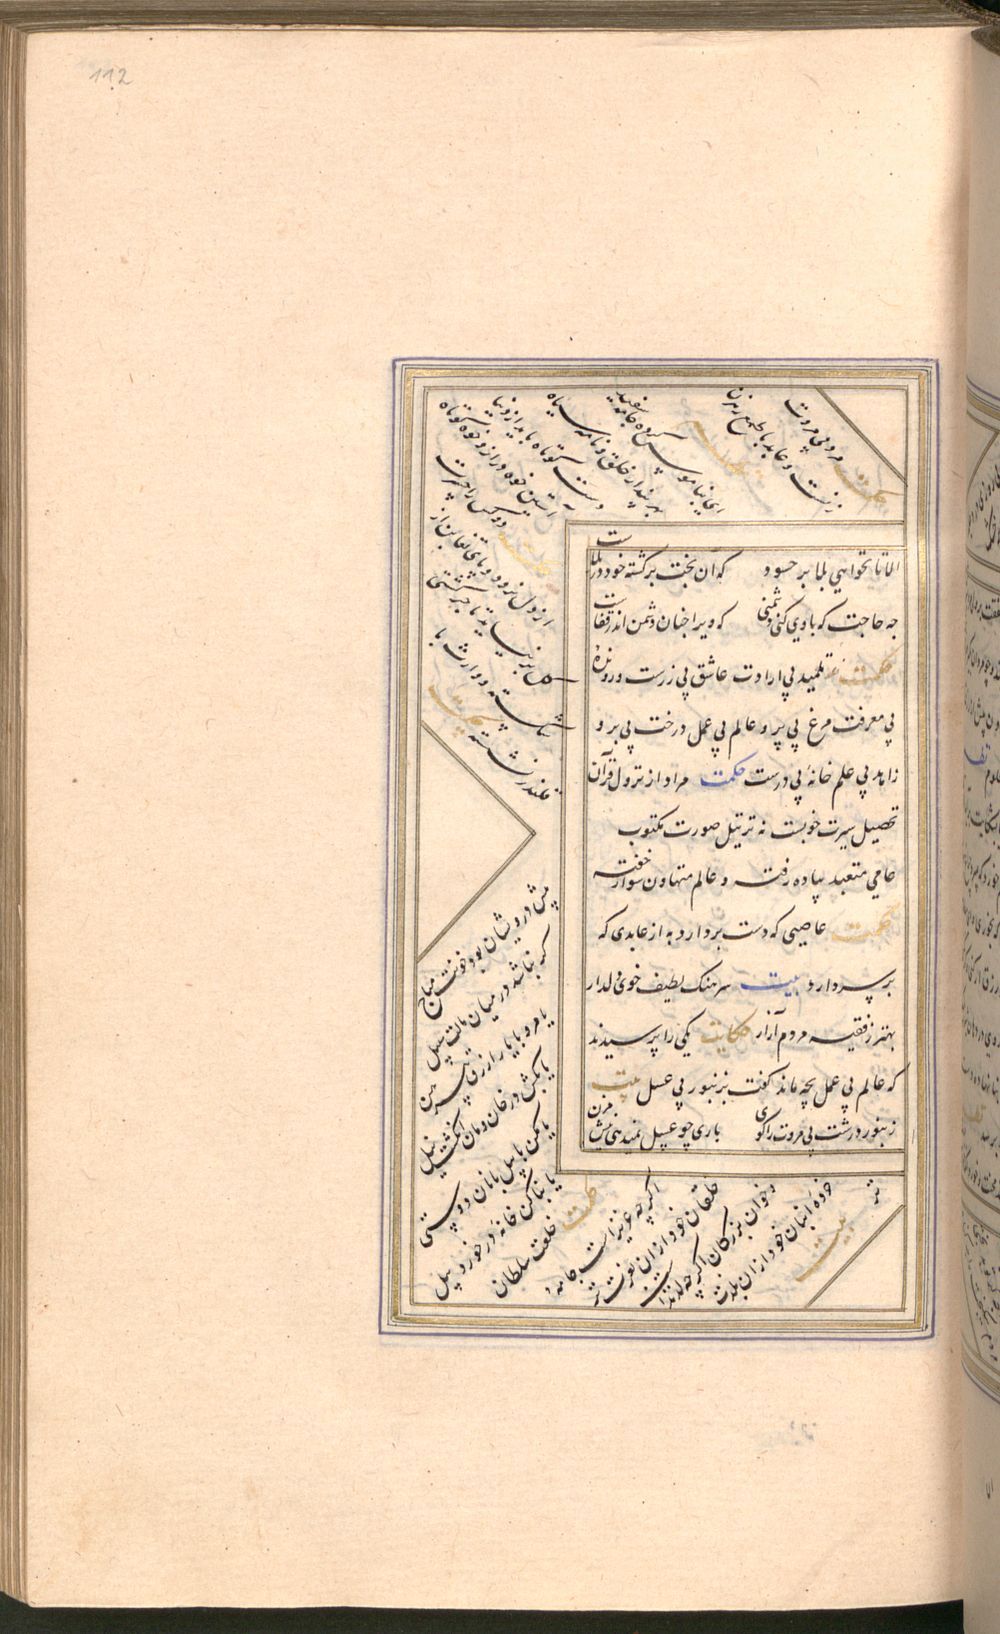 112
الا تا نخواهی بلا بر حسود
که آن بخت برگشته خود در بلاست
چه حاجت که با وی کنی دشمنی
که ویرا چنان دشمن اندر قفاست
حکمت تلمید بی ارادت عاشق بی زرست و روندهٔ
بی معرفت مرغ بی پر و عالم بی عمل درخت بی بر و
زاهد بی علم خانهٔ بی درست حکمت مراد از نزول قرآن
تحصیل سیرت خوبست نه ترتیل صورت مکتوب
عامی متعبد پیاده رفته و عالم متهاون سوار خفته
حکمت عاصیی که دست بردارد به از عابدی که
بر سر دارد بیت سرهنک لطیف خوی دلدار
بهتر ز فقیه مردم آزار حکایت یکی را پرسیدند
که عالم بی عمل بچه ماند کفت بزنبور بی عسل بیت
زنبور درشت بی مروت را کوی
باری چو عسل نمیدهی نیش مزن
حکمت مرد بی مروت
زنست و عابد با طمع رهزن
ای بناموس کرده جامه سفید
بهر پندار خلق و نامه سیاه
دست کوتاه باید از دنیا
آستین خوه دراز و خوه کوتاه
حکمت دو کس را حسرت
از دل نرود و پای تغابن از
کل بر نیاید تاجر کشتی
شکسته و وارث با
قلندر نشسته حکمت
پیش درویشان بود خونت مباح
کر نباشد در میان مالت سبیل
یا مرو با یار ازرق پیرهن
یا بکش در خان و مان انکشت نیل
یا مکن با پیل بانان دوستی
یا بنا کن خانه در خورد پیل
حکمت خلعت سلطان
اکرچه عزیز است جامهٔ
خلقان خود از ان بعزت تر
و خوان بزرکان اکرچه لذیذ است
خوردهٔ انبان خود از ان بلذت
تر
بیت